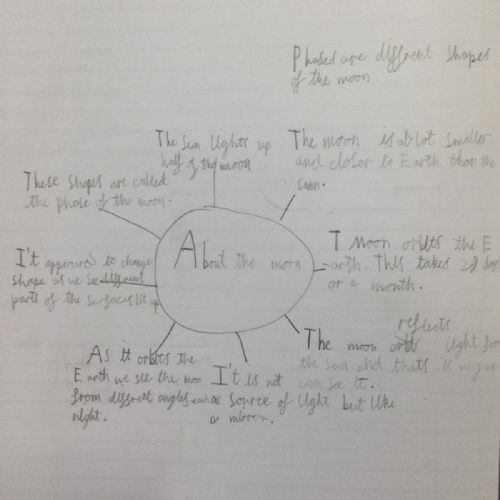 Phases are different shapes
of the moon
The Sun lights up
half of the moon
The moon is a lot smaller
and closer to Earth than the
sun.
These shapes are called
the phase of the moon.
About the moon
T Moon orbits the E
arth. This takes 27 days
or a month.
I't appeared to change
shape as we see different
parts of the surfaces lit up
The moon reflects light
the sun and thats
can see it.
As it orbits the
Earth we see the moon
from different angles each
night.
I't is not
a source of light but like
a mirror.